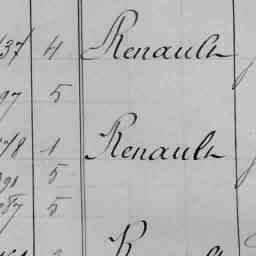 37 4 Renault
97 5
78 1 Renault
91 5
87 5
R